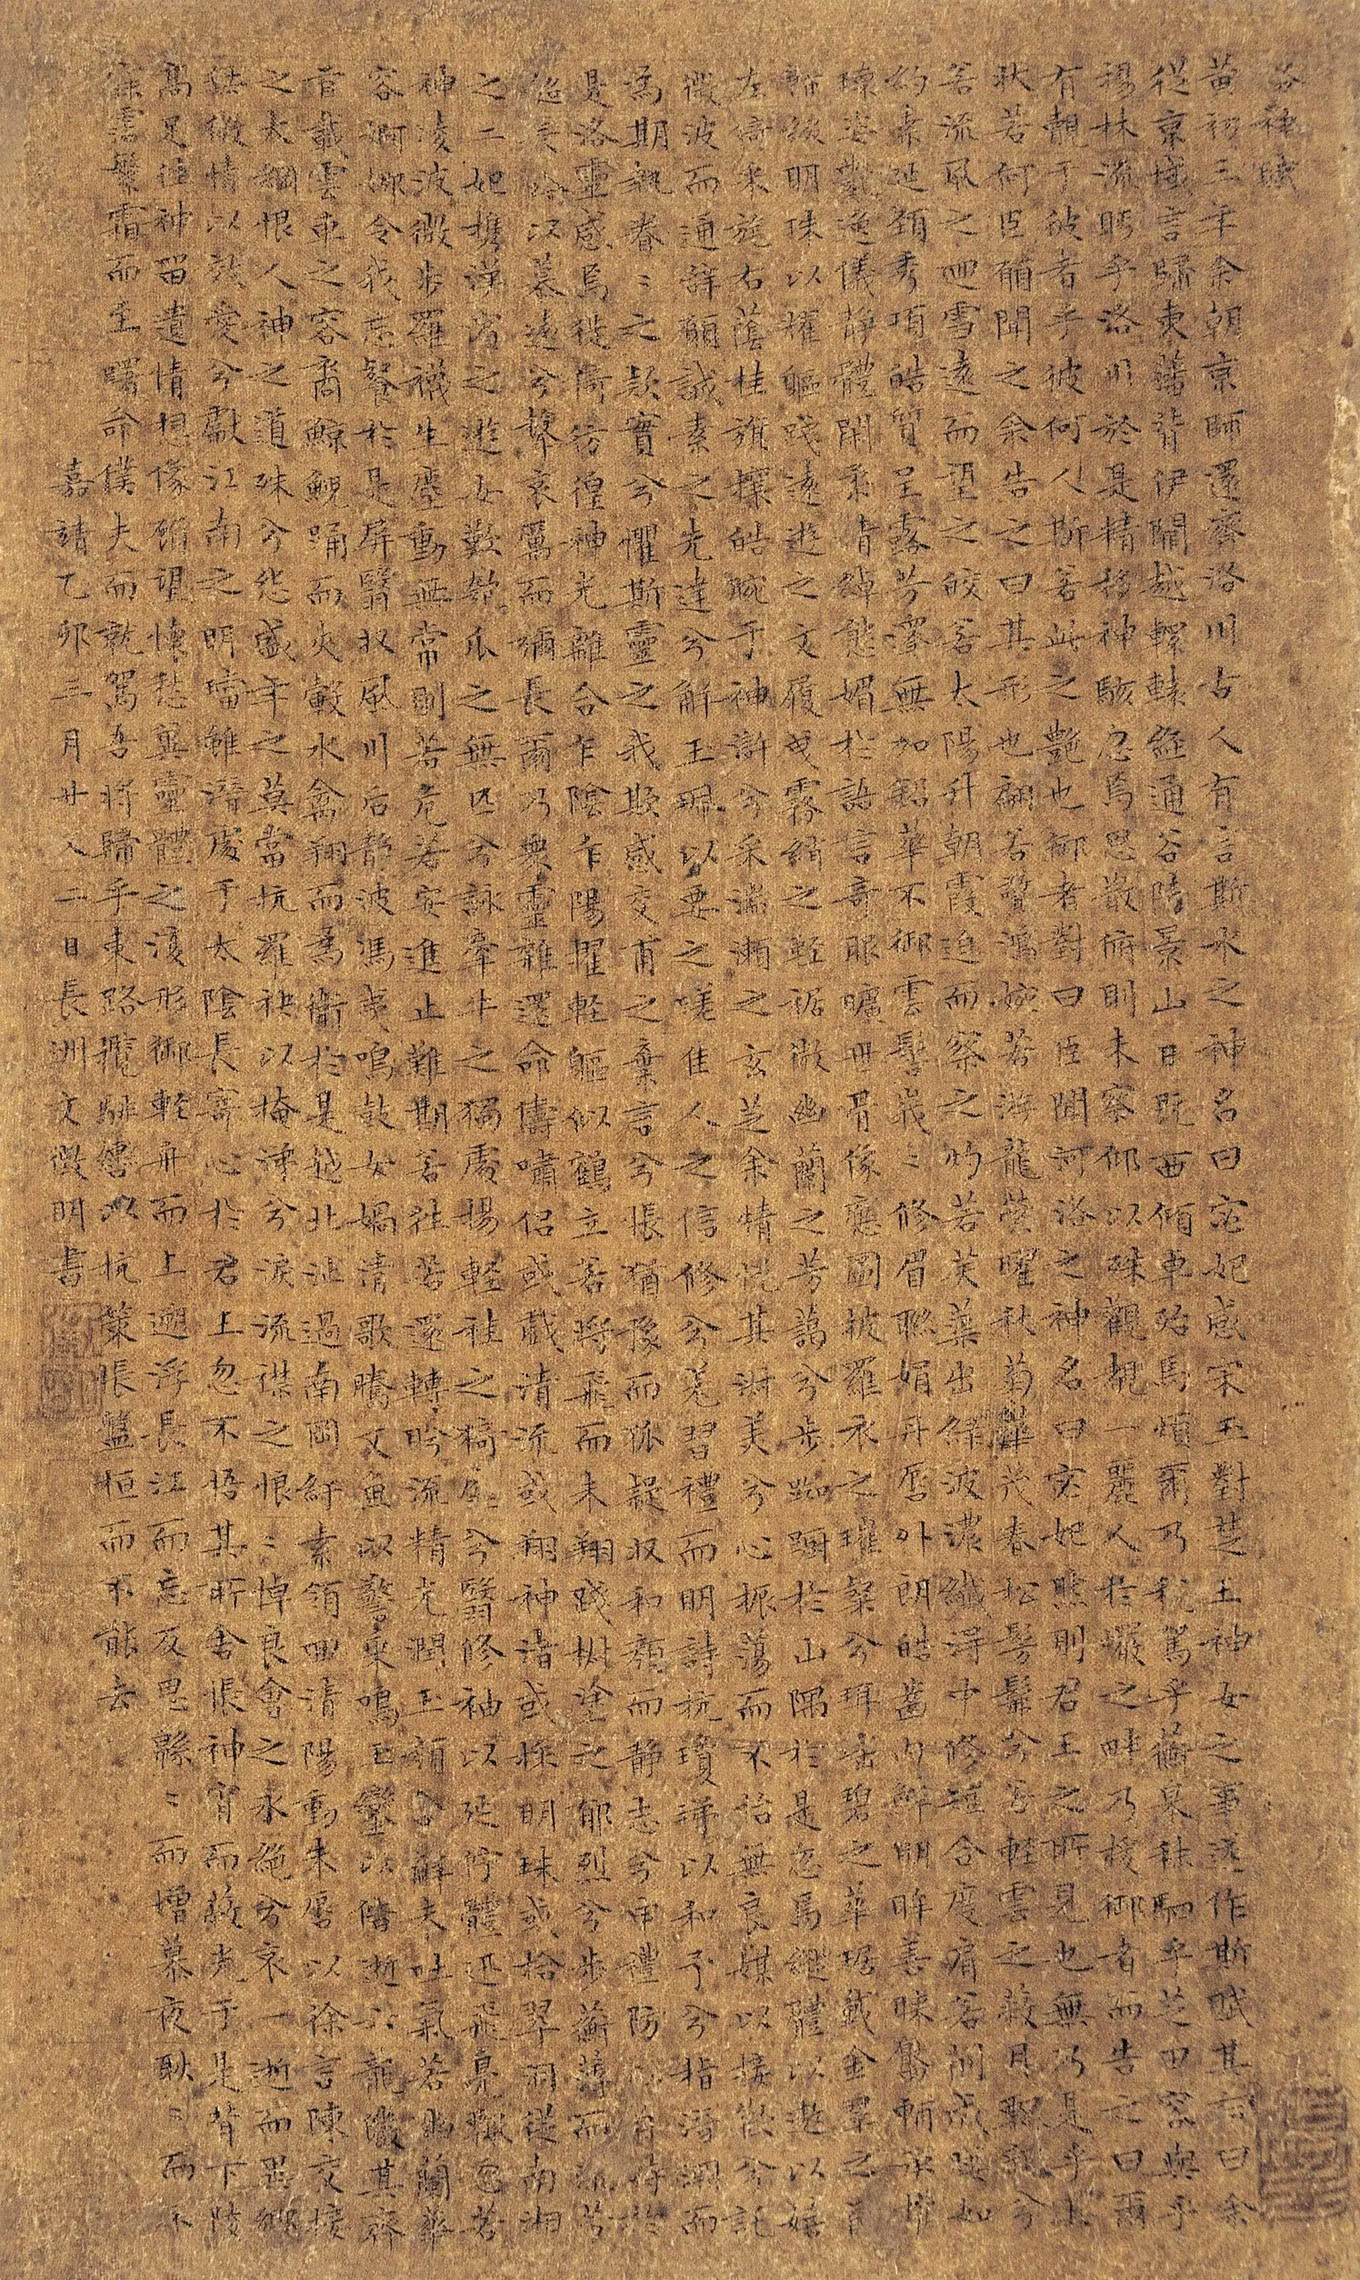 洛神賦
黃初三年余朝京師還濟洛川古人有言斯水之神名曰宓妃感宋玉對楚王神女之事遂作斯賦其詞曰余
從京域言歸東藩背伊闕越轘轅經通谷陵景山日既西傾車殆馬煩爾乃稅駕乎蘅皋秣駟乎芝田容與乎
楊林流眄乎洛川於是精移神駭忽焉思散俯則未察仰以殊觀覩一麗人於巖之畔乃援御者而告之曰爾
有覿于彼者乎彼何人斯若此之艷也御者對曰臣聞河洛之神名曰宓妃然則君王之所見也無乃是乎其
狀若何臣願聞之余告之曰其形也翩若驚鴻婉若游龍榮曜秋菊華茂春松髣髴兮若輕雲之蔽月飄飖兮
若流風之迴雪遠而望之皎若太陽升朝霞迫而察之灼若芙蕖出綠波濃纖得中修短合度肩若削成腰如
約素延頸秀項皓質呈露芳澤無加鉛華不御雲髻峩〻修眉聯娟丹唇外朗皓齒內鮮明眸善睞靨輔承權
瓌姿艷逸儀靜體閑柔情綽態媚於語言奇服曠世骨像應圖披羅衣之璀粲兮珥瑤碧之華琚戴金翠之首
飾綴明珠以耀軀踐遠遊之文履曳霧綃之輕裾微幽蘭之芳藹兮步踟躕於山隅於是忽焉縱體以遨以嬉
左倚采旄右蔭桂旗攘皓腕于神滸兮采湍瀨之玄芝余情悅其淑美兮心振蕩而不怡無良媒以接歡兮託
微波而通辭願誠素之先達兮解玉珮以要之嗟佳人之信修兮羌習禮而明詩抗瓊珶以和予兮指潛淵而
為期執眷〻之款實兮懼斯靈之我欺感交甫之棄言兮悵猶豫而狐疑收和顏而靜志兮申禮防以自持於
是洛靈感焉徙倚彷徨神光離合乍陰乍陽擢輕軀似鶴立若將飛而未翔踐椒塗之郁烈兮步蘅薄而流芳
超長吟以慕遠兮聲哀厲而彌長爾乃眾靈雜遝命儔嘯侶或戲清流或翔神渚或採明珠或拾翠羽從南湘
之二妃攜漢濱之遊女歎匏瓜之無匹兮詠牽牛之獨處揚輕袿之猗靡兮翳修袖以延佇體迅飛鳧飄忽若
神凌波微步羅襪生塵動無常則若危若安進止難期若往若還轉眄流精光潤玉顏含辭未吐氣若幽蘭華
容婀娜令我忘餐於是屏翳收風川后靜波馮夷鳴鼓女媧清歌騰文魚以警乘鳴玉鑾以偕逝六龍儼其齊
首載雲車之容裔鯨鯢踊而夾轂水禽翔而為衛於是越北沚過南岡紆素領迴清陽動朱唇以徐言陳交接
之大綱恨人神之道殊兮怨盛年之莫當抗羅袂以掩涕兮淚流襟之恨〻悼良會之永絕兮哀一逝而異鄉
無微情以效愛兮獻江南之明璫雖潛處于太陰長寄心於君王忽不悟其所舍悵神宵而蔽光于是背下陵
高足往神留遺情想像顧望懷愁冀靈體之復形御輕舟而上遡浮長江而忘反思緜〻而增慕夜耿〻而不
寐霑繁霜而至曙命僕夫而就駕吾將歸乎東路攬騑轡以抗策悵盤桓而不能去
嘉靖乙卯三月廿又二日長洲文徵明書